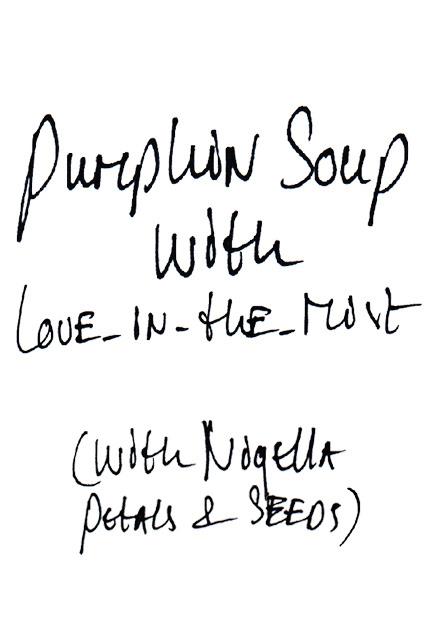 Pumpkin Soup
with
Love-in-the-Mist
(with Nigella
Petals & Seeds)